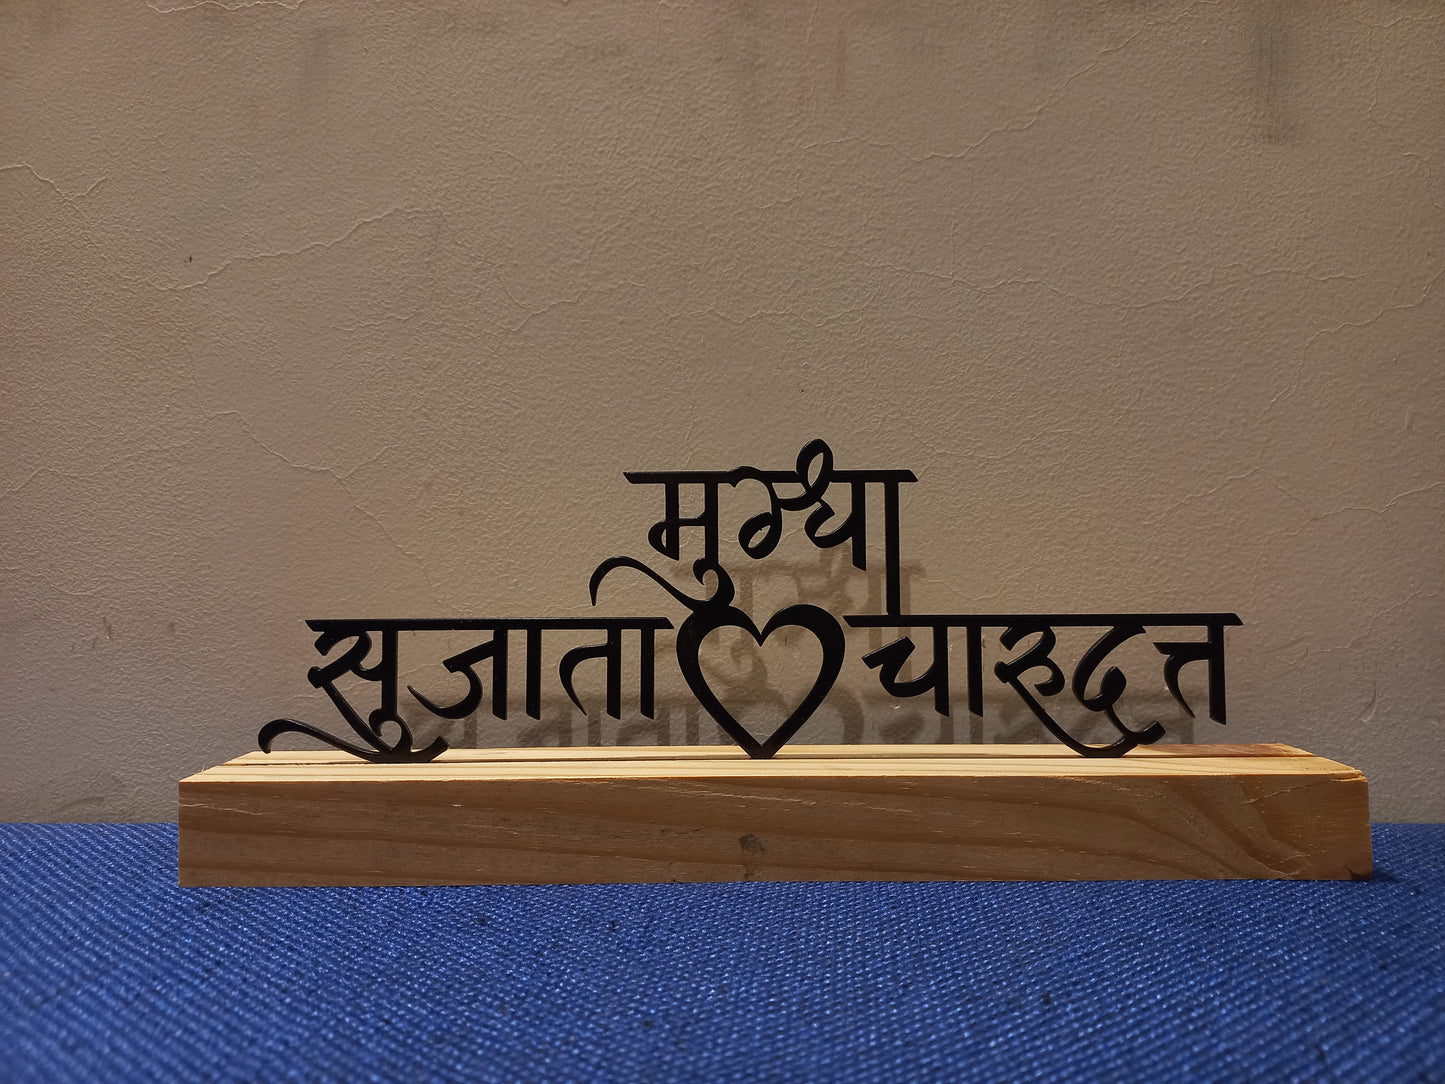 मुग्धा
सुजाता चारुदत्त